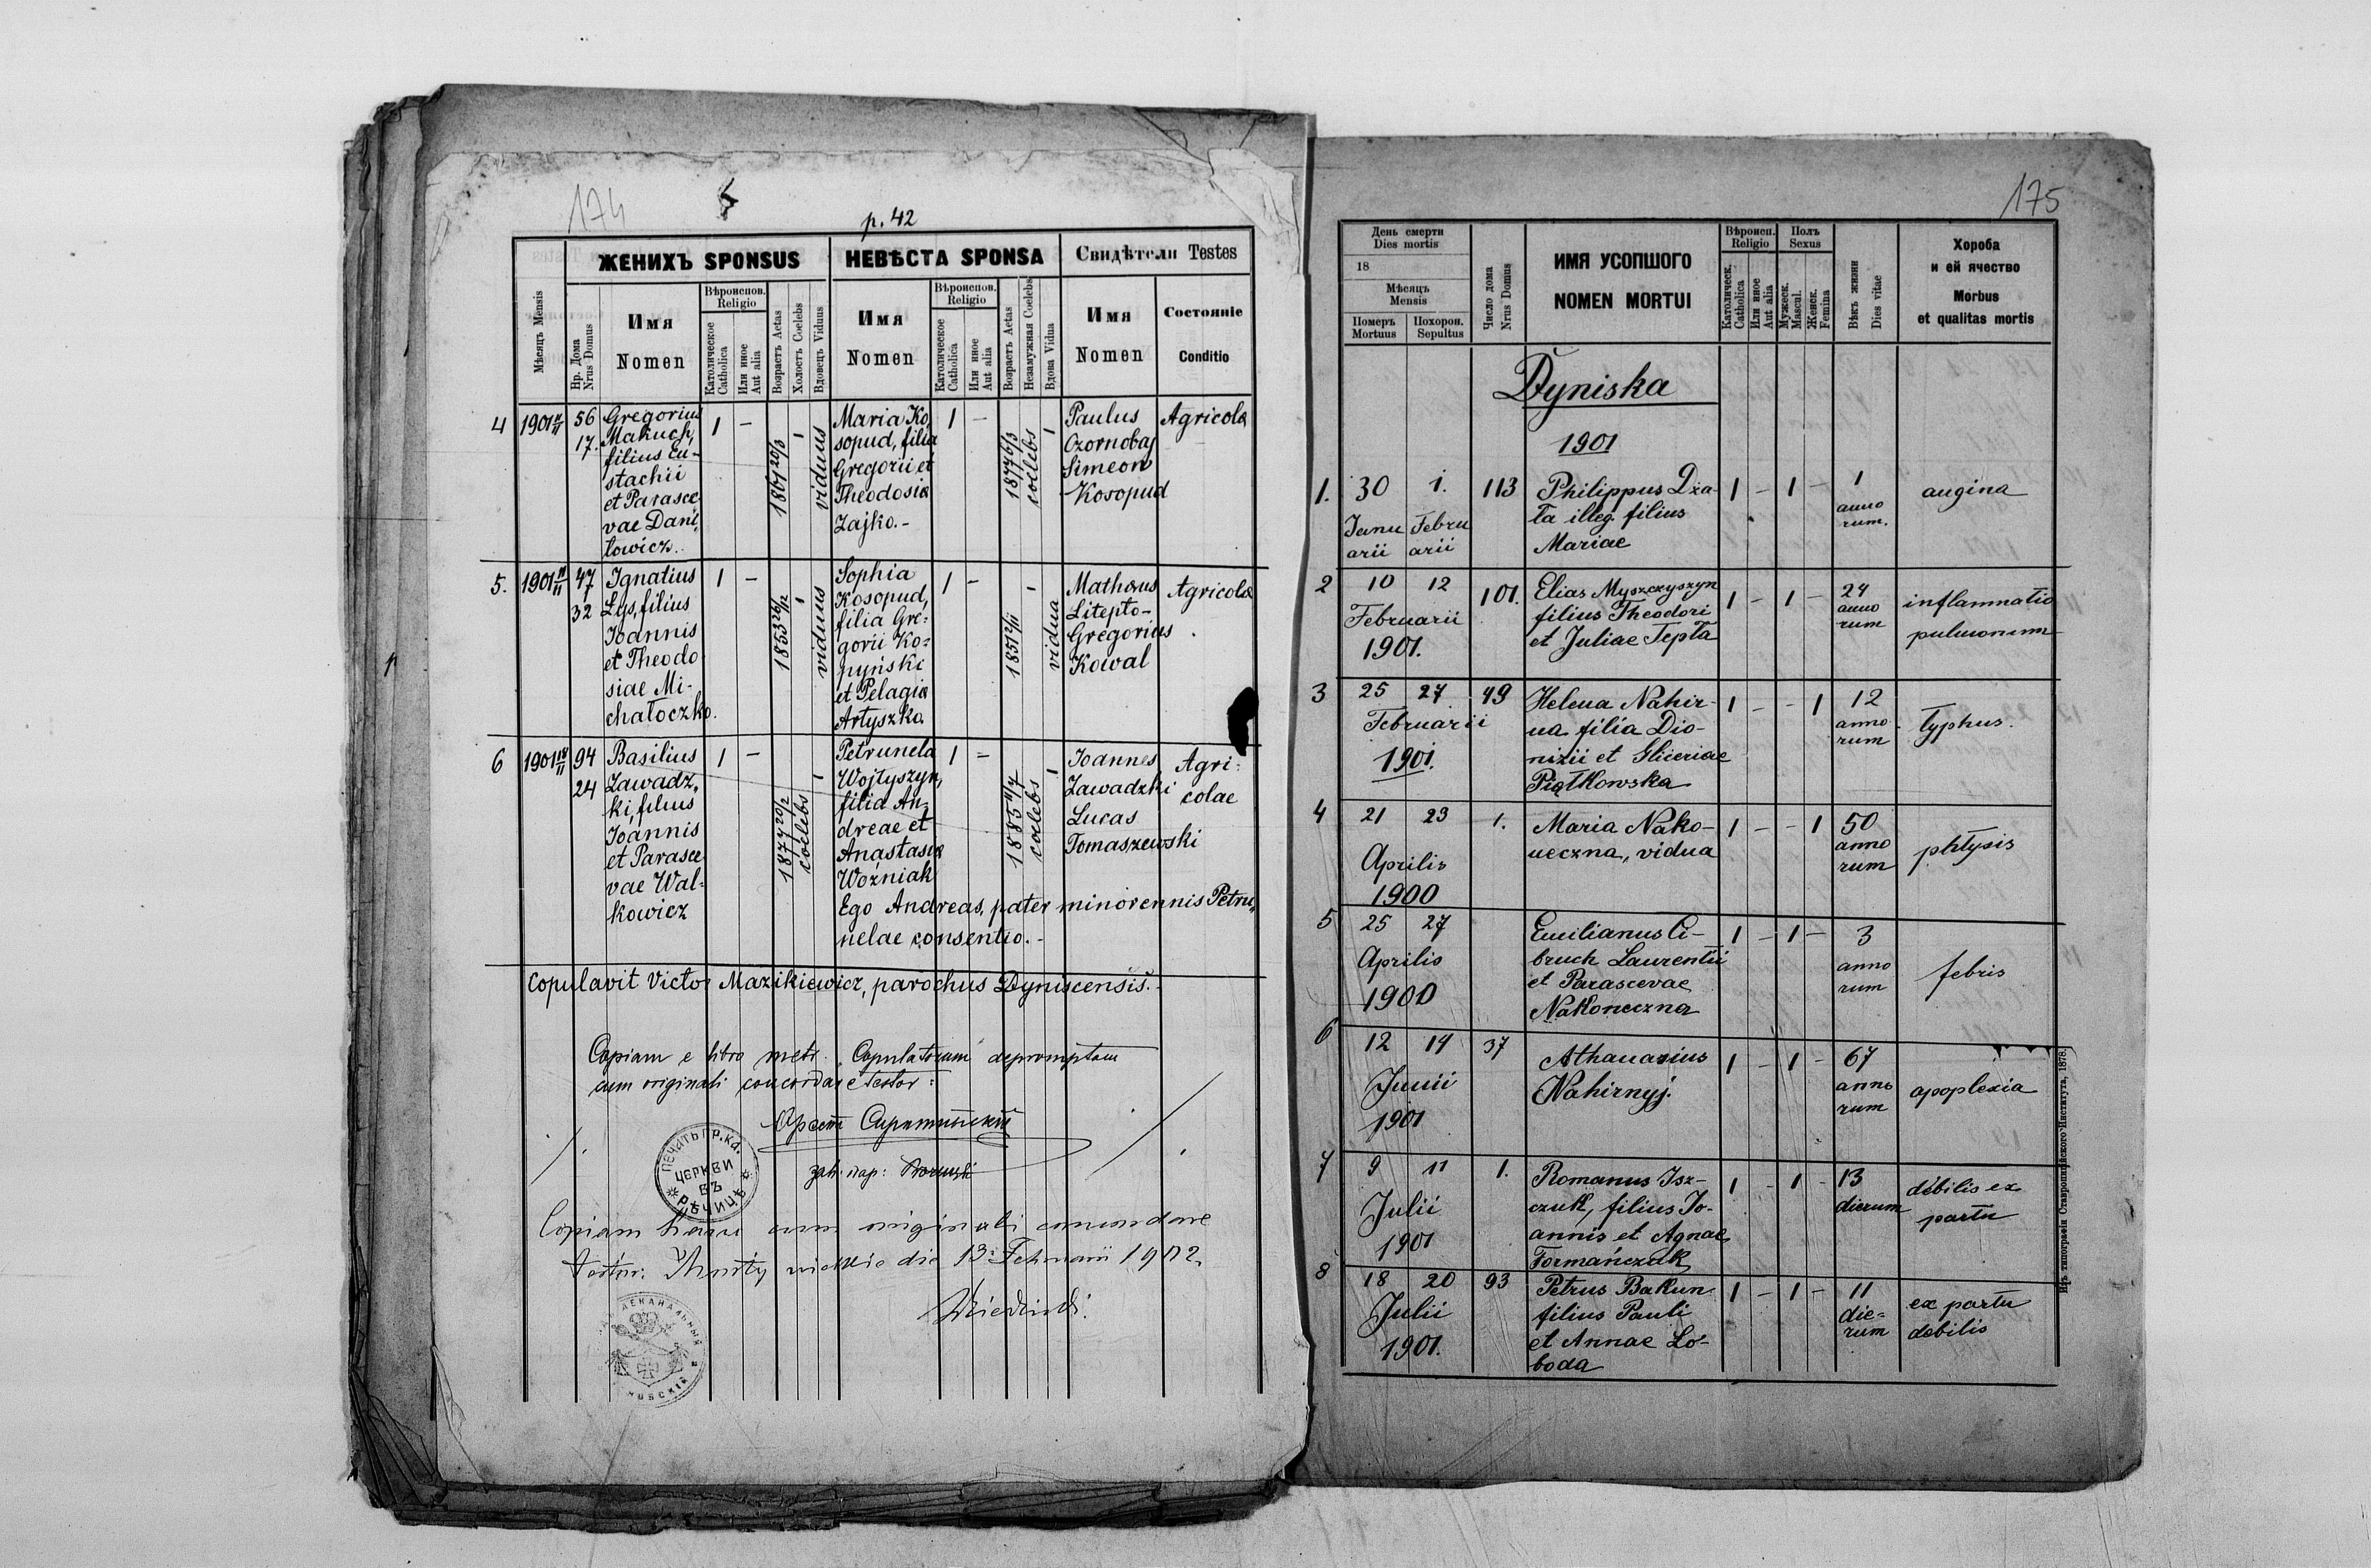 174
p. 42
ЖЕНИХЪ SPONSUS
НЕВѢСТА SPONSA
Свидѣтели Testes
Мѣсяцъ Mensis
Нр. Дома
Nrus Domus
Имя
Nomen
Вѣроиспов.
Religio
Католическое
Catholica
Или иное
Aut alia
Возрастъ Aetas
Холостъ Coelebs
Вдовецъ Viduus
Имя
Nomen
Вѣроиспов.
Religio
Католическое
Catholica
Или иное
Aut alia
Возрастъ Aetas
Незамужная Coelebs
Вдова Vidua
Имя
Nomen
Состояніе
Conditio
4
1901
56
17.
Gregorius
Makuch,
filius Eu-
stachii
et Parasce
vae Dani,
łowicz.
1 -
1861 20/3
1
viduus
Maria Ko,
sopud, filia
Gregorii et
Theodosia
Zajko.-
1 -
1877 6/3
coelebs
1
Paulus
Czornobaj
Simeon
Kosopud
Agricola
5.
1901
47
32
Ignatius
Lys, filius
Joannis
et Theodo
siae Mi-
chałoczko.
1 -
1853 26/12
1
viduus
Sophia
Kosopud,
filia Gre-
gorii Ko-
pyński
et Pelagia
Artyszko.
1 -
1851 2/11
1
vidua
Mathaus
Litepto-
Gregorius
Kowal
Agricola
6
1901
94
24
Basilius
Zawadz,
ki, filius
Joannis
et Parasce
vae Wal-
kowicz
1 -
1877 20/2
coelebs
1
Petrunela
Wojtyszyn,
filia An-
dreae et
Anastasia
Woźniak
1 -
1885 11/7
coelebs
1
Joannes
Zawadzki
Lucas
Tomaszewski
Agri-
colae
Ego Andreas, pater minorennis Petru,,
nelae consentio.-
Copulavit Victor Mazikiewicz, parochus Dyniscensis.-
Copiam e libro metr. Copulatorum depromptam
cum originali concordare testor:
ПЕЧАТЬ ГР. КА.
ЦЕРКВИ
ВЪ
РѢЧИЦѢ
Copiam hanc cum originali concordare
testor: die 13 Februarii 1902.
ДЕКАНАЛЬНЫЙ
175
День смерти
Dies mortis
18
Мѣсяцъ
Mensis
Померъ
Mortuus
Похорон.
Sepultus
Число дома
Nrus Domus
ИМЯ УСОПШОГО
NOMEN MORTUI
Вѣроисп.
Religio
Католическ.
Catholica
Или иное
Aut alia
Полъ
Sexus
Мужеск.
Mascul.
Женск.
Femina
Вѣкъ жизни
Dies vitae
Хороба
и ей ячество
Morbus
et qualitas mortis
Dyniska
1901
1. 30 1. 113
Janu Febru
arii arii
Philippus Dża-
ła illeg. filius
Mariae
1 - 1 -
1
anno
rum.
angina
2 10 12 101.
Februarii
1901.
Elias Myszczyszyn
filius Theodori
et Juliae Tepła
1 - 1 -
24
anno
rum
inflammatio
pulmonum
3 25 27 49
Februarii
1901.
Helena Nahir-
na filia Dio-
nizii et Gliceriae
Piątkowska
1 - - 1
12
anno
rum
typhus.
4 21 23 1.
Aprilis
1900
Maria Nako-
neczna, vidua
1 - - 1
50
anno
rum
phtysis
5 25 27
Aprilis
1900
Emilianus Ci-
bruch Laurentii
et Parascevae
Nakoneczna
1 - 1 -
3
anno
rum
febris
6 12 14 37
Junii
1901
Athanasius
Nahirnyj.
1 - 1 -
67
anno
rum
apoplexia
7 9 11 1.
Julii
1901
Romanus Isz-
czuk, filius Jo-
annis et Agnae
Formańczuk
1 - 1 -
13
dierum
debilis ex
partu
8 18 20 93
Julii
1901.
Petrus Bakun
filius Pauli
et Annae Ło-
boda
1 - 1 -
11
die-
rum
ex partu
debilis
Изъ типографіи Ставропигійского Института, 1878.